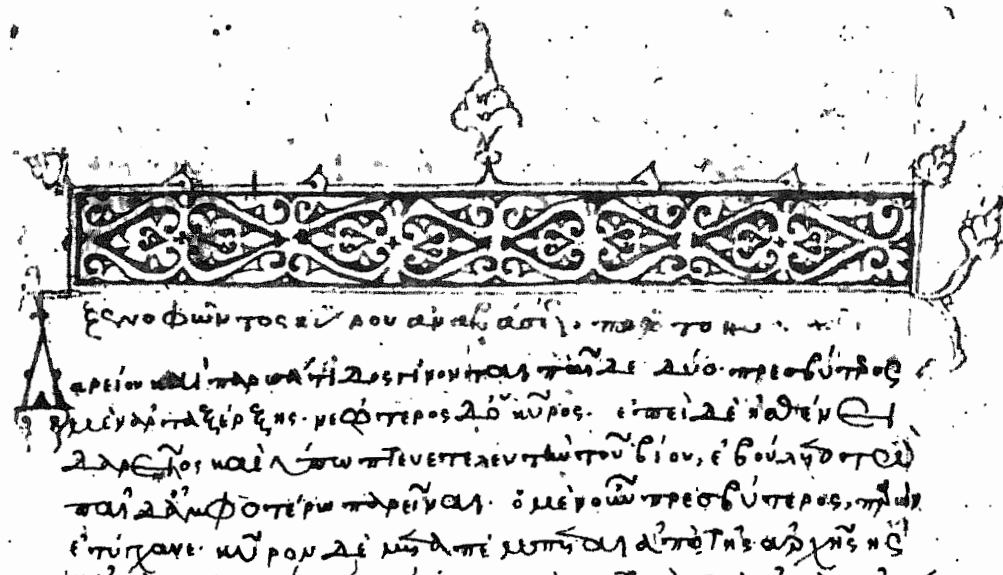 ξενοφῶντος κύρου ἀναβάσε
Δαρείου καὶ παρυσάτιδος γίνονται παῖδε δύο· πρεσβύτερος
μὲν ἀρταξέρξης· νεώτερος δὲ κῦρος· ἐπεὶ δὲ ἠσθένει
δαρεῖος καὶ ὑπώπτευε τελευτὴν τοῦ βίου, ἐβούλετο τὼ
παῖδ' ἀμφοτέρω παρεῖναι. ὁ μὲν οὖν πρεσβύτερος, παρὼν
ἐτύγχανε· κῦρον δὲ μεταπέμπεται ἀπὸ τῆς ἀρχῆς ἧς